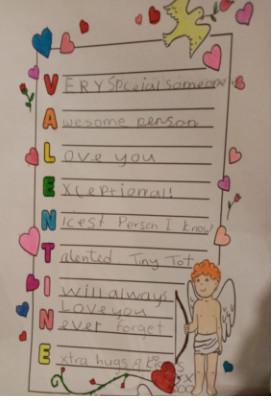 VERY special someone
Awesome person
Love you
Exceptional!
Nicest Person I know
Talented Tiny Tot
I will always
Love you
Never forget
Extra hugs &